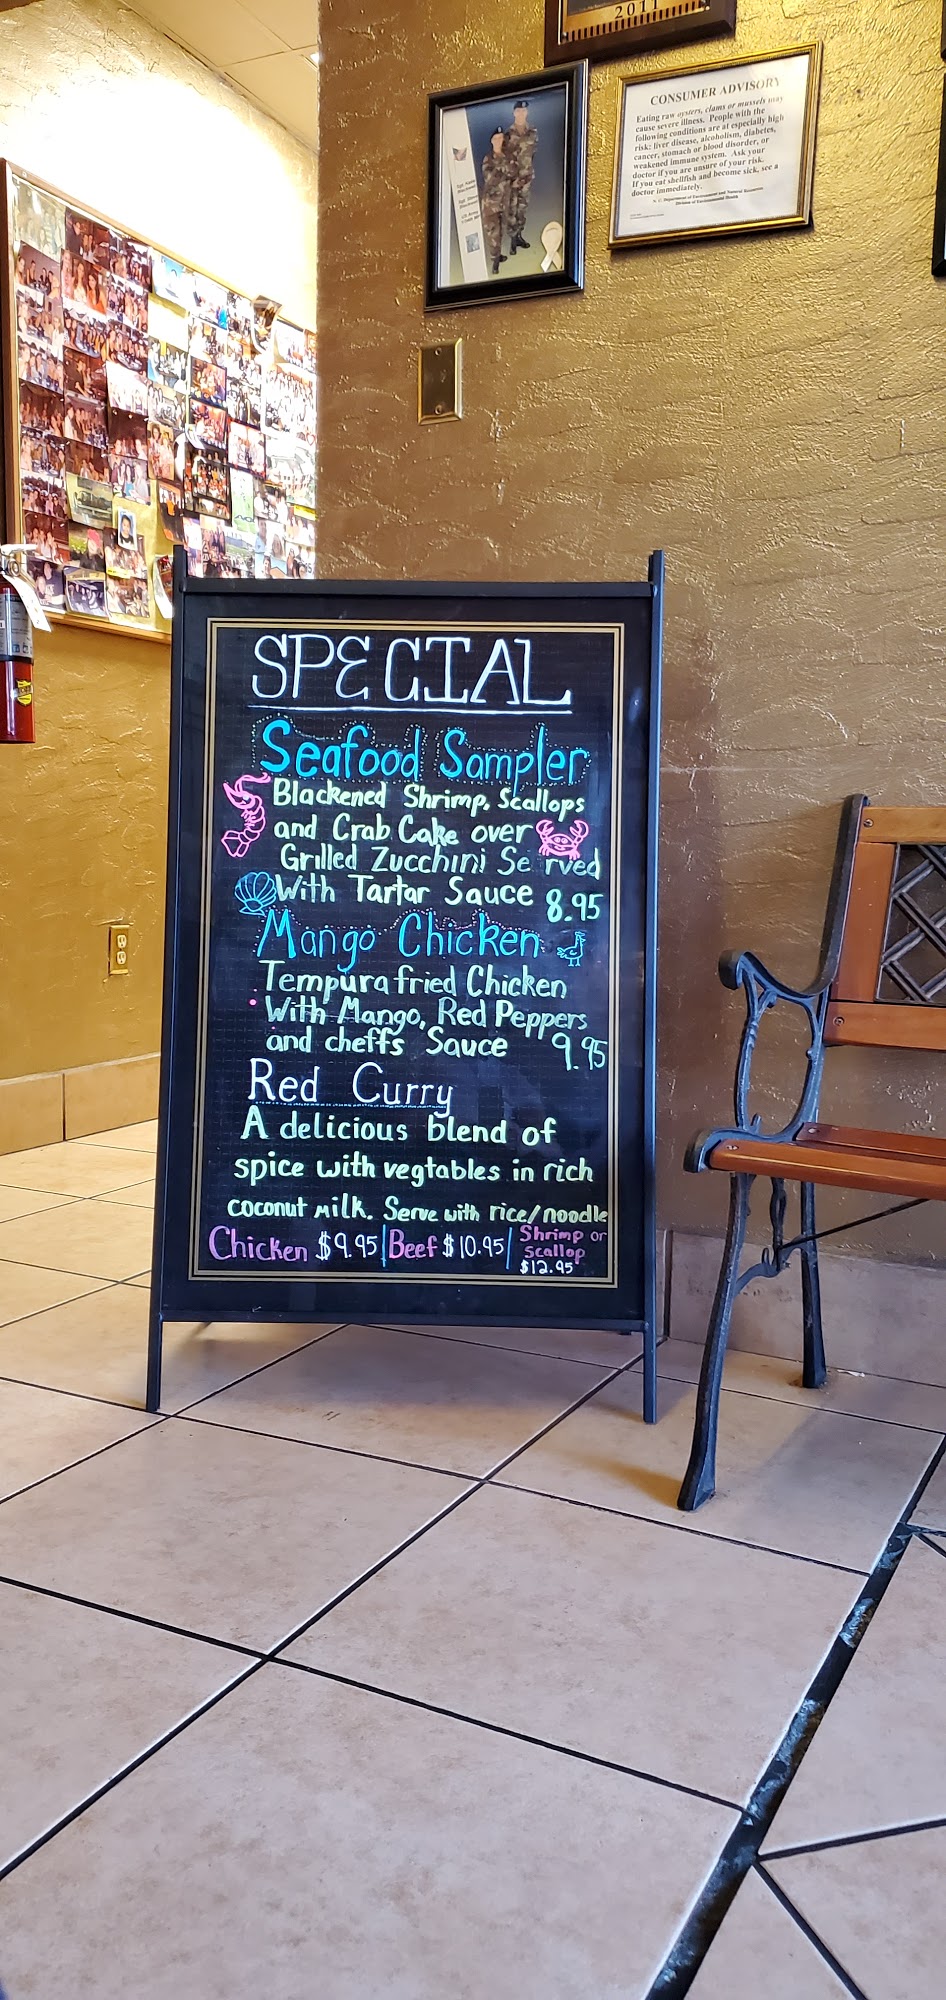 2011
CONSUMER ADVISORY
Eating raw oysters, clams or mussels may
cause severe illness. People with the
following conditions are at especially high
risk: liver disease, alcoholism, diabetes,
cancer, stomach or blood disorder, or
weakened immune system. Ask your
doctor if you are unsure of your risk.
If you eat shellfish and become sick, see a
doctor immediately.
N. C. Department of Environment and Natural Resources
Division of Environmental Health
SPECIAL
Seafood Sampler
Blackened Shrimp, Scallops
and Crab Cake over
Grilled Zucchini Se rved
With Tartar Sauce 8.95
Mango Chicken
Tempura fried Chicken
With Mango, Red Peppers
and cheffs Sauce 9.95
Red Curry
A delicious blend of
spice with vegtables in rich
coconut milk. Serve with rice/noodle
Chicken $9.95 | Beef $10.95 | Shrimp or
scallop
$12.95